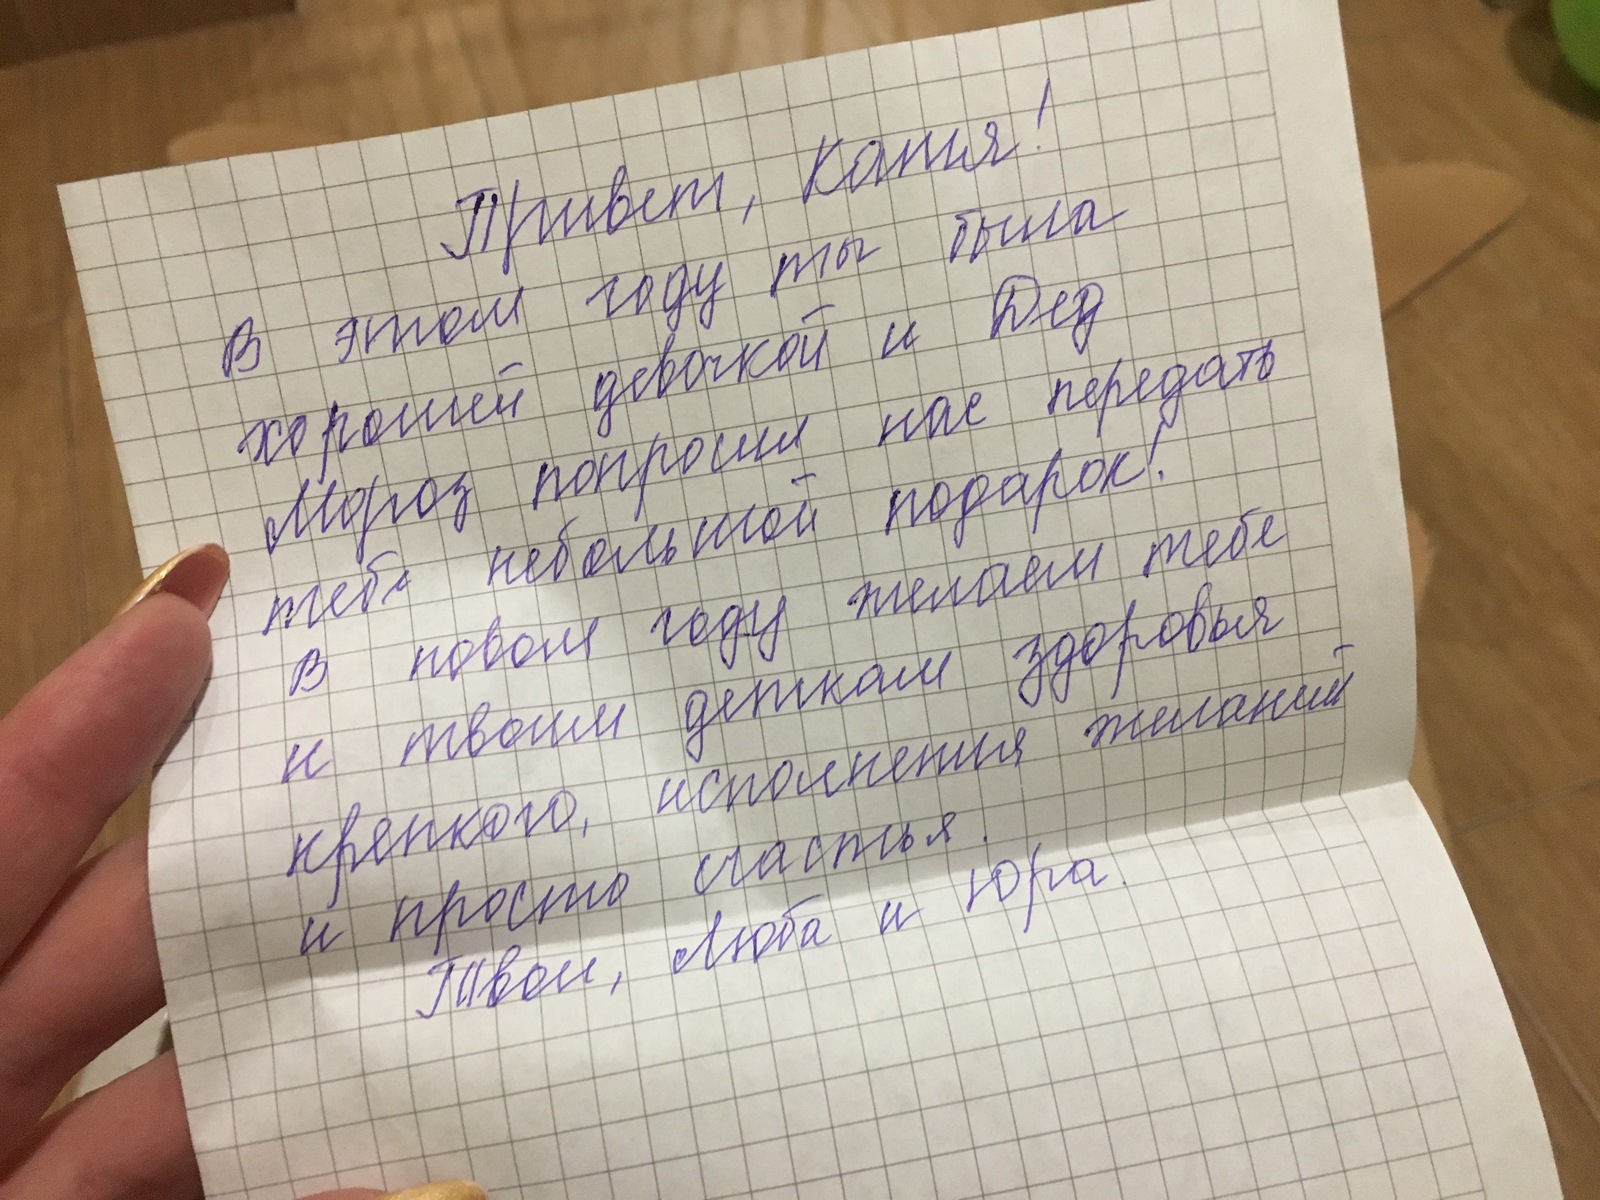 Привет, Катя!
В этом году ты была
хорошей девочкой и Дед
Мороз попросил нас передать
тебе небольшой подарок!
В новом году желаем тебе
и твоим деткам здоровья
крепкого, исполнения желаний
и просто счастья.
Твои, Люба и Юра.